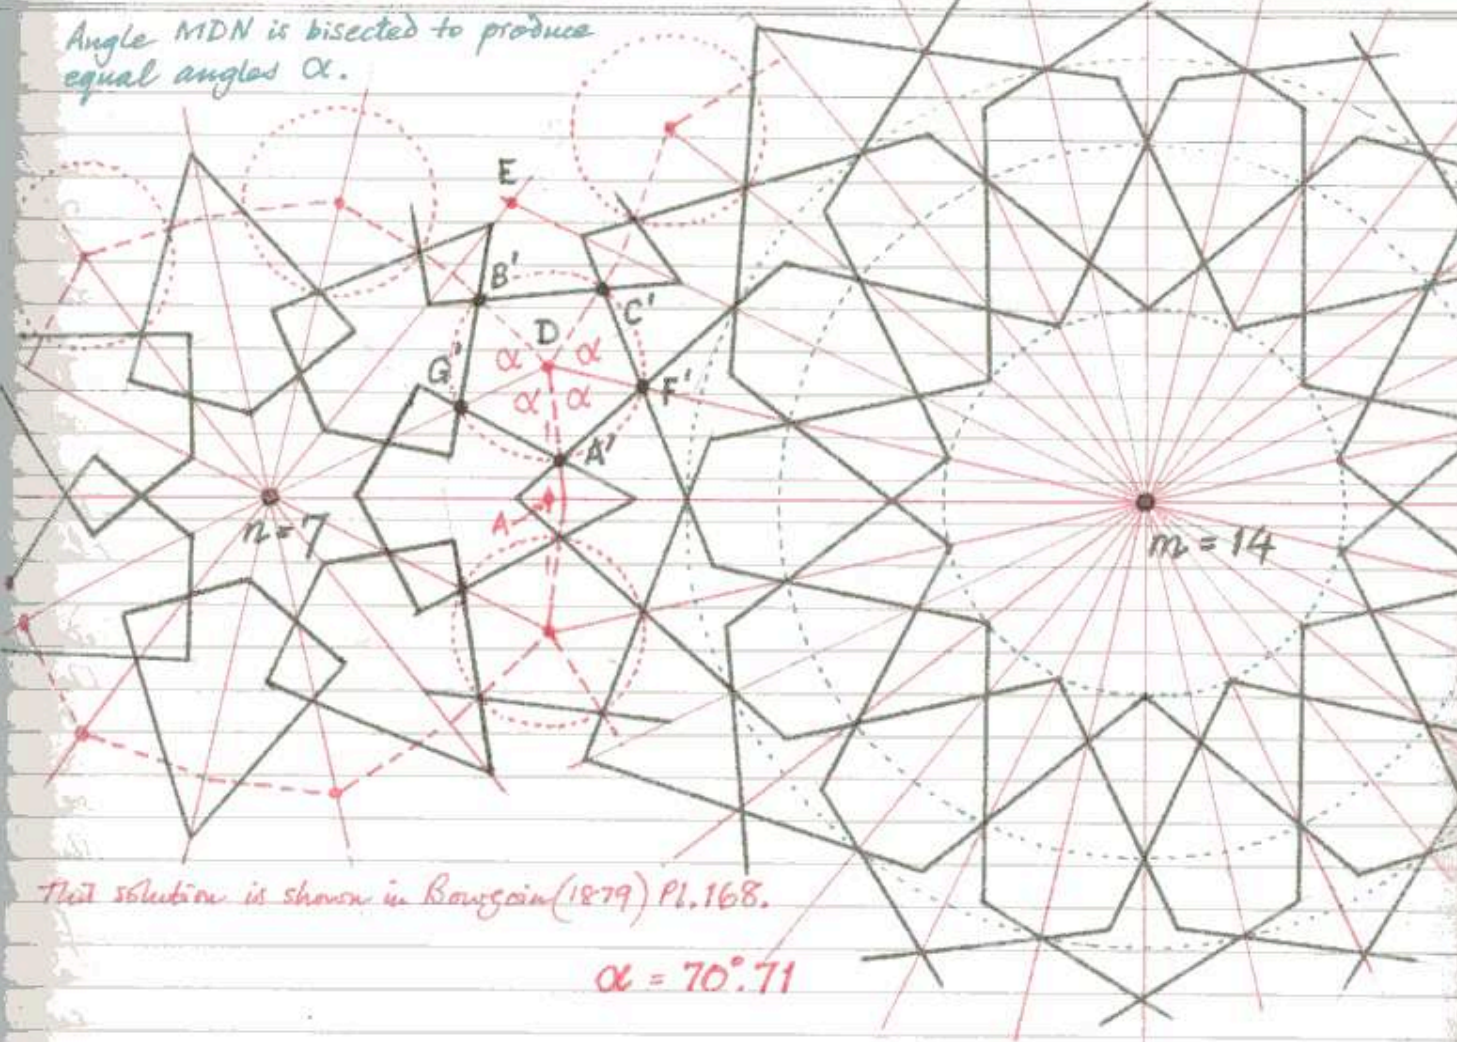 Angle MDN is bisected to produce
equal angles α.
E
B'
C'
D
α α
G'
α α
F'
A'
A
n = 7
m = 14
This solution is shown in Bourgoin (1879) Pl. 168.
α = 70°.71